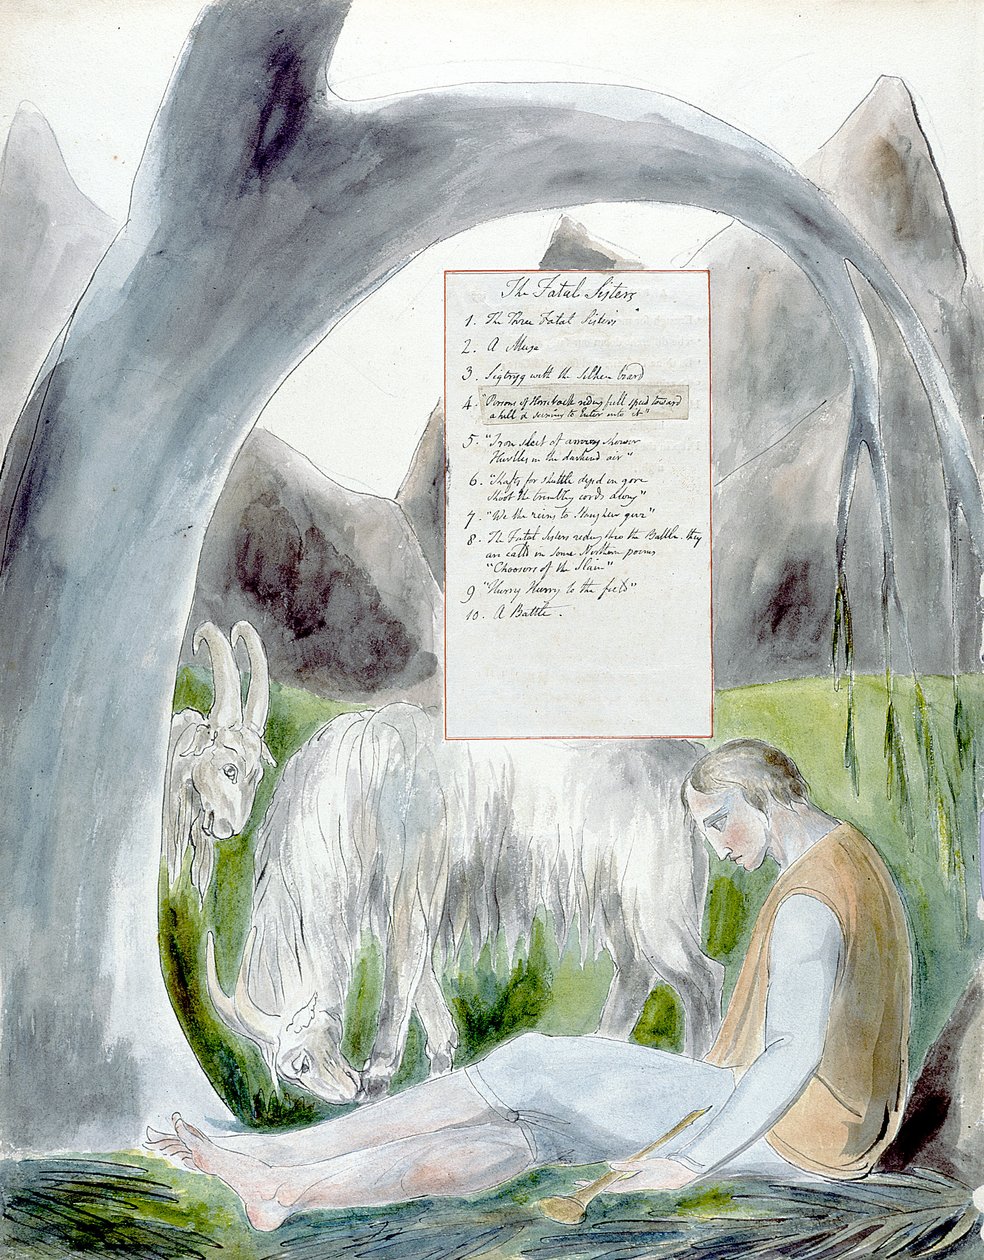 The Fatal Sisters
1. The Three Fatal Sisters
2. A Muse
3. Sigtryg with the Silken beard
4. "Persons of Horseback riding full speed toward
a hill & seeming to Enter into it"
5. "Iron sleet of arrowy shower
Hurtles in the darkend air"
6. "Shafts for shuttle dyed in gore
Shoot the trembling cords along"
7. "We the reins to Slaughter give"
8. The Fatal Sisters riding thro the Battle. they
are calld in some Northern poems
"Choosers of the Slain"
9 "Hurry Hurry to the field"
10. A Battle.